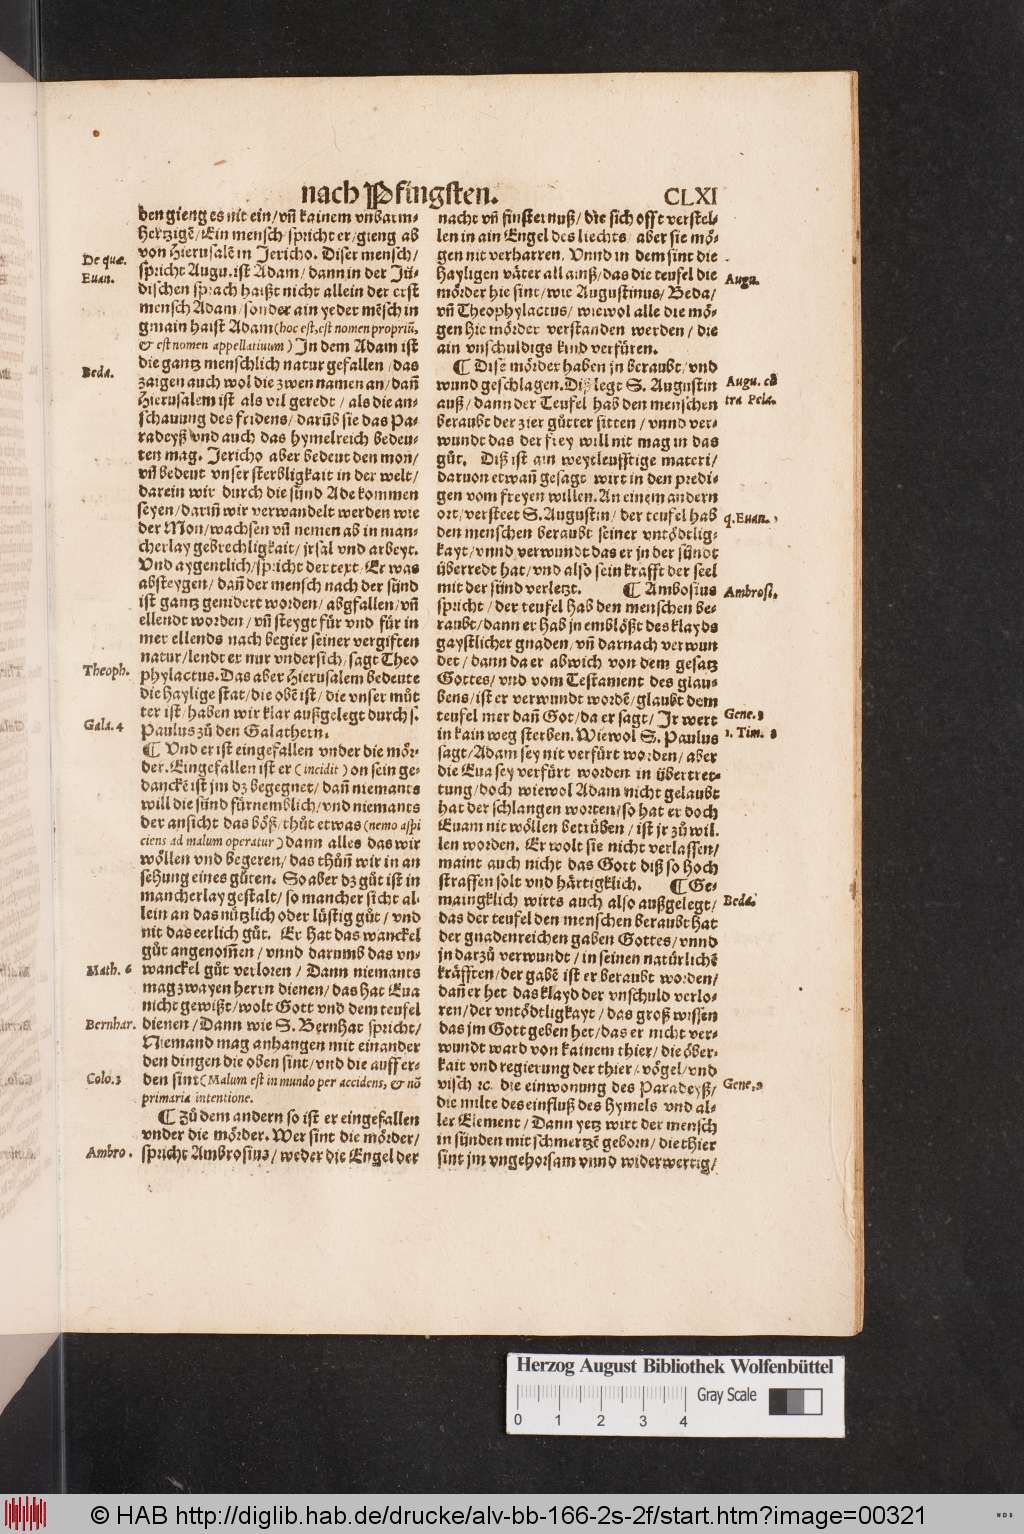 nach Pfingsten.
CLXI
den gieng es nit ein/vñ kainem vnbarm⸗
hertzigẽ/Ein mensch spricht er/gieng ab
von Hierusalẽ in Jericho. Diser mensch/
De quæ.
spricht Augu. ist Adam/dann in der Jü⸗
Euan.
dischen sprach haißt nicht allein der erst
mensch Adam/sonder ain yeder mẽsch in
gmain haist Adam (hoc est, est nomen propriũ,
& est nomen appellatiuum) In dem Adam ist
die gantz menschlich natur gefallen/das
Beda.
zaigen auch wol die zwen namen an/dañ
Hierusalem ist als vil geredt/als die an⸗
schauung des fridens/darũb sie das Pa⸗
radeyß vnd auch das hymelreich bedeu⸗
ten mag. Jericho aber bedeut den mon/
vñ bedeut vnser sterbligkait in der welt/
darein wir durch die sünd Ade kommen
seyen/dariñ wir verwandelt werden wie
der Mon/wachsen vñ nemen ab in man⸗
cherlay gebrechligkait/jrsal vnd arbeyt.
Vnd aygentlich/spricht der text/Er was
absteygen/dañ der mensch nach der sünd
ist gantz genidert worden/abgfallen/vñ
ellendt worden/vñ steygt für vnd für in
mer ellends nach begier seiner vergiften
natur/lendt er nur vndersich/sagt Theo
Theoph.
phylactus. Das aber Hierusalem bedeute
die haylige stat/die obẽ ist/die vnser můt
ter ist/haben wir klar außgelegt durch s.
Gala. 4
Paulus zů den Galathern.
¶ Vnd er ist eingefallen vnder die mör⸗
der. Eingefallen ist er (incidit) on sein ge⸗
danckẽ ist jm dz begegnet/dañ niemants
will die sünd fürnemblich/vnd niemants
der ansicht das böß/thůt etwas (nemo aspi
ciens ad malum operatur) dann alles das wir
wöllen vnd begeren/das thůñ wir in an
sehung eines gůten. So aber dz gůt ist in
mancherlay gestalt/so mancher sicht al⸗
lein an das nützlich oder lüstig gůt/vnd
nit das eerlich gůt. Er hat das wanckel
gůt angenom̃en/vnnd darumb das vn⸗
wanckel gůt verloren/Dann niemants
Math. 6
mag zwayen herrn dienen/das hat Eua
nicht gewißt/wolt Gott vnd dem teufel
dienen/Dann wie S. Bernhat spricht/
Bernhar.
Niemand mag anhangen mit einander
den dingen die oben sint/vnd die auff er⸗
den sint (Malum est in mundo per accidens, & nõ
Colo. 3
primaria intentione.
¶ Zů dem andern so ist er eingefallen
vnder die mörder. Wer sint die mörder/
spricht Ambrosius/weder die Engel der
Ambro.
nacht vñ finsternuß/die sich offt verstel⸗
len in ain Engel des liechts/aber sie mö⸗
gen nit verharren. Vnnd in dem sint die
hayligen väter all ainß/das die teufel die
Augu.
mörder hie sint/wie Augustinus/Beda/
vñ Theophylactus/wiewol alle die mö⸗
gen hie mörder verstanden werden/die
ain vnschuldigs kind verfüren.
¶ Dise mörder haben jn beraubt/vnd
wund geschlagen. Diß legt S. Augustin
Augu. cõ
auß/dann der Teufel hab den menschen
tra Pela.
beraubt der zier gůtter sitten/vnnd ver⸗
wundt das der frey will nit mag in das
gůt. Diß ist ain weytleufftige materi/
daruon etwañ gesagt wirt in den predi⸗
gen vom freyen willen. An einem andern
ort/versteet S. Augustin/der teufel hab
q. Euan.
den menschen beraubt seiner vntödtlig⸗
kayt/vnnd verwundt das er jn der sündt
überredt hat/vnd also sein krafft der seel
mit der sünd verletzt. ¶ Ambosius
Ambrosi.
spricht/der teufel hab den menschen be⸗
raubt/dann er hab jn emblößt des klayds
gaystlicher gnaden/vñ darnach verwun
det/dann da er abwich von dem gesatz
Gottes/vnd vom Testament des glau⸗
bens/ist er verwundt wordẽ/glaubt dem
teufel mer dañ Got/da er sagt/Jr wert
Gene. 3
in kain weg sterben. Wiewol S. Paulus
1. Tim. 2
sagt/Adam sey nit verfürt worden/aber
die Eua sey verfürt worden in übertret⸗
tung/doch wiewol Adam nicht gelaubt
hat der schlangen worten/so hat er doch
Euam nit wöllen betrüben/ist jr zů wil.
len worden. Er wolt sie nicht verlassen/
maint auch nicht das Gott diß so hoch
straffen solt vnd härtigklich. ¶ Ge⸗
maingklich wirts auch also außgelegt/
Beda.
das der teufel den menschen beraubt hat
der gnadenreichen gaben Gottes/vnnd
jn darzů verwundt/in seinen natürlichẽ
kräfften/der gabẽ ist er beraubt worden/
dañ er het das klayd der vnschuld verlo⸗
ren/der vntödtligkayt/das groß wissen
das jm Gott geben het/das er nicht ver⸗
wundt ward von kainem thier/die öber⸗
kait vnd regierung der thier/vögel/vnd
visch ꝛc. die einwonung des Paradeyß/
Gene. 2
die milte des einfluß des hymels vnd al⸗
ler Element/Dann yetz wirt der mensch
in sünden mit schmertzẽ geborn/die thier
sint jm vngehorsam vnnd widerwertig/
Herzog August Bibliothek Wolfenbüttel
Gray Scale
0 1 2 3 4
© HAB http://diglib.hab.de/drucke/alv-bb-166-2s-2f/start.htm?image=00321